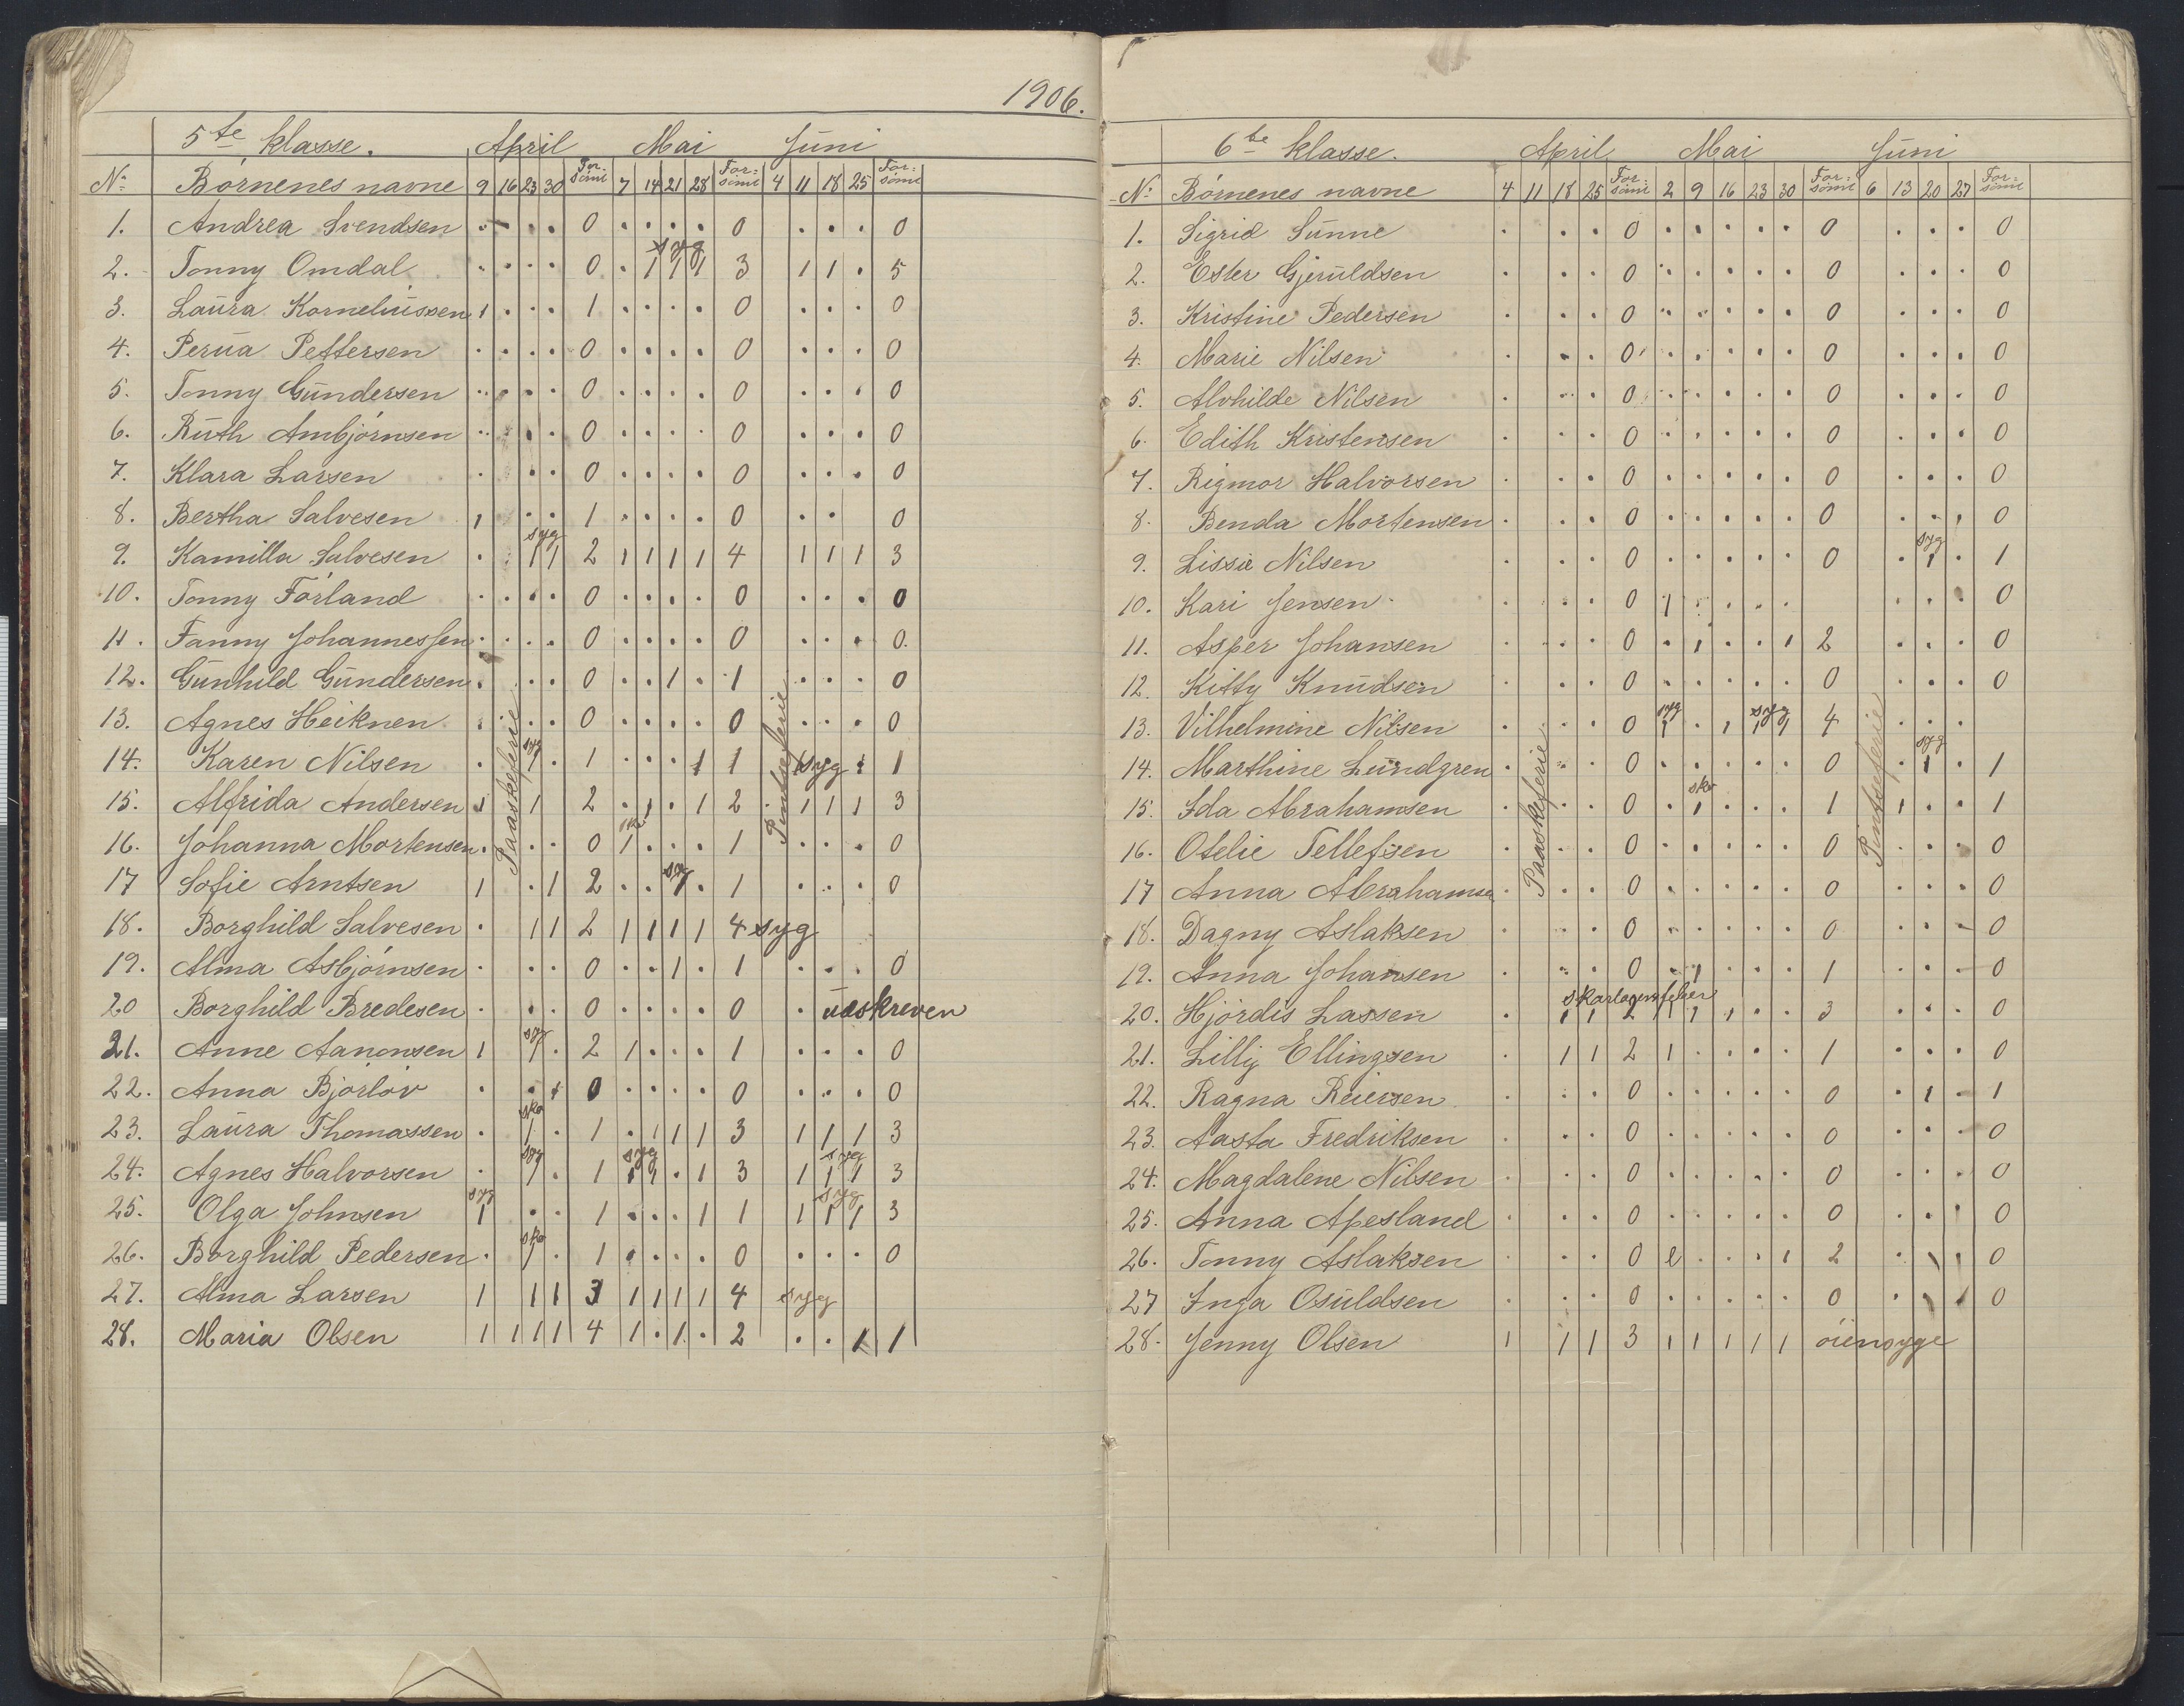 1906.
5te klasse. April Mai Juni
No Børnenes navne 9 16 23 30 For-sömt 7 14 21 28 For-sömt 4 11 18 25 For-sömt
1. Andrea Svendsen . - . . 0 . . . . 0 . . . 0
syg
2. Tonny Omdal . . . . 0 . 1 1 1 3 1 1 . 5
3. Laura Korneliussen 1 . . . 1 . . . . 0 . . . 0
4. Perua Pettersen . . . . 0 . . . . 0 . . . 0
5. Tonny Gundersen . . . . 0 . . . . 0 . . . 0
6. Ruth Ambjørnsen . . . . 0 . . . . 0 . . . 0
7. Klara Larsen . . . 0 . . . . 0 . . . 0
8. Bertha Salvesen 1 . . 1 . . . . 0 . . 0
syg
9. Kamilla Salvesen . 1 1 2 1 1 1 1 4 1 1 1 3
10. Tonny Förland . . . . 0 . . . . 0 . . . 0
11. Fanny Johannessen . . . . 0 . . . . 0 . . . 0.
12. Gunhild Gundersen . . . 0 . . 1 . 1 . . . 0
13. Agnes Heiknen . . . . 0 . . . . 0 . . . 0
Paaskeferie
Pintseferie
syg
14. Karen Nilsen . 1 . 1 . . . 1 1 syg 1 1
15. Alfrida Andersen 1 1 2 . 1 . 1 2 . 1 1 1 3
16. Johanna Mortensen . . . 0 1 . . . 1 . . . 0
syg
17 Sofie Arntsen 1 . 1 2 . . 1 . 1 . . . 0
18. Borghild Salvesen . 1 1 2 1 1 1 1 4 syg
19. Alma Asbjørnsen . . . 0 . . 1 . 1 . . . 0
20 Borghild Bredesen . . . 0 . . . . 0 . udskreven
syg
21. Anne Aanonsen 1 1 . 2 1 . . . 1 . . . 0
22. Anna Bjorlöv . . . 0 . . . . 0 . . . 0
sko
23. Laura Thomassen . 1 . 1 . 1 1 1 3 1 1 1 3
syg syg syg
24. Agnes Halvorsen . 1 . 1 1 1 . 1 3 1 1 1 3
syg syg
25. Olga Johnsen 1 . . 1 . . . 1 1 1 1 1 3
sko
26. Borghild Pedersen . 1 . 1 . . . . 0 . . . 0
27. Alma Larsen 1 1 1 3 1 1 1 1 4 syg
28. Maria Olsen 1 1 1 1 4 1 . 1 . 2 . . 1 1
6te klasse. April Mai Juni
No Børnenes navne 4 11 18 25 For-sömt 2 9 16 23 30 For-sömt 6 13 20 27 For-sömt
1. Sigrid Sunne . . . 0 . . . . . 0 . . . 0
2. Ester Gjeruldsen . . . 0 . . . . . 0 . . . 0
3. Kristine Pedersen . . . 0 . . . . . 0 . . . 0
4. Marie Nilsen . . . 0 . . . . . 0 . . . 0
5. Alvhilde Nilsen . . . 0 . . . . . 0 . . . 0
6. Edith Kristensen . . . 0 . . . . . 0 . . . 0
7. Rigmor Halvorsen . . . 0 . . . . . 0 . . . 0
8. Benda Mortensen . . . 0 . . . . . 0 . . . 0
syg
9. Lissie Nilsen . . . 0 . . . . . 0 . 1 . 1
10. Kari Jensen . . . 0 1 . . . . . . . 0
11. Asper Johansen . . . 0 . 1 . . 1 2 . . . 0
12. Kitty Knudsen . . . 0 . . . . . 0 . . . 0
syg syg
13. Vilhelmine Nilsen . . . 0 1 . 1 1 1 4 . . .
Paaskeferie
Pintseferie
syg
14. Marthine Lundgren . . . 0 . . . . . 0 . 1 . 1
sko
15. Ida Abrahamsen . . . 0 . 1 . . . 1 1 . . 1
16. Otelie Tellefsen . . . 0 . . . . . 0 . . . 0
17 Anna Abrahamsen . . . 0 . . . . . 0 . . . 0
18. Dagny Aslaksen . . . 0 . . . . . 0 . . . 0
19. Anna Johansen . . . 0 . 1 . . . 1 . . . 0
skarlagensfeber
20. Hjördis Lassen . 1 1 2 1 1 1 . . 3 . . . 0
21. Lilly Ellingsen . 1 1 2 1 . . . . 1 . . . 0
22. Ragna Reiersen . . . 0 . . . . . 0 . 1 . 1
23. Aasta Fredriksen . . . 0 . . . . . 0 . . . 0
24. Magdalene Nilsen . . . 0 . . . . . 0 . . . 0
25. Anna Apesland . . . 0 . . . . . 0 . . . 0
26. Tonny Aslaksen . . . 0 e . . . 1 2 . . . 0
27 Inga Osuldsen . . . 0 . . . . . 0 . . . 0
28. Jenny Olsen 1 1 1 3 1 1 1 1 1 öiensyge